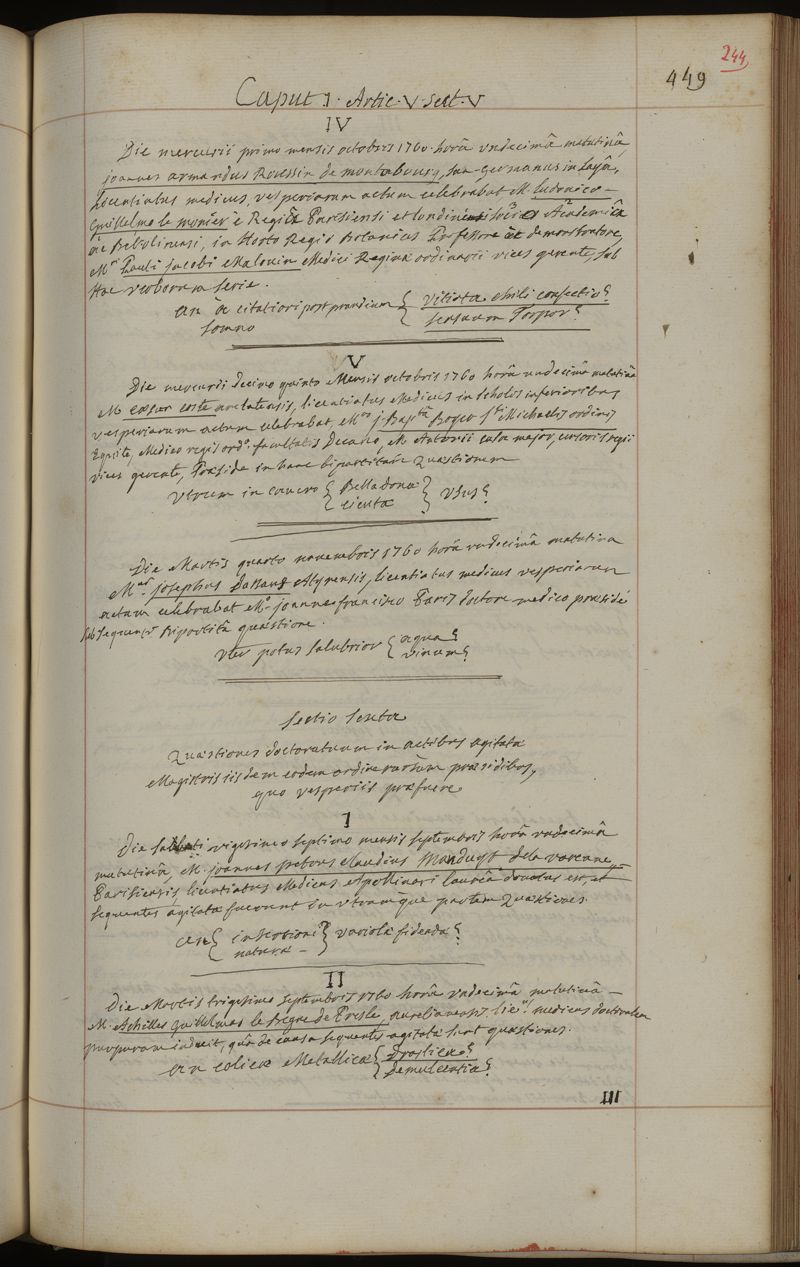 244
449
Caput I. Artic. V. Sect. V
IV
Die mercurii primo mensis octobris 1760. horâ undecimâ matutinâ,
joannes armandus Roussin de montabourg, san-germanus in Layâ,
Licentiatus medicus, vesperiarum actum celebrabat M. ludovico-
guillelmo le monier è Regiâ Parisiensi et Academiâ
ac Berolinensi, in Horto Regio Botanices Professore et demonstratore,
Mri Pauli jacobi Malouin Medici Reginæ ordinarii vices gerente, sub
Hac verborum serie.
an à citatiori post prandium { vitiota chili confectio?
somno { sensuum Torpor?
V
Die mercurii decimo quinto Mensis octobris 1760 horâ undecimâ matutinâ
M. cæsar coste arelatensis, licentiatus Medicus in scholis inferioribus
vesperiarum actum celebrabat, Mro j. Bapta Boyer sti Michaelis ordinis
Equite, Medico regis ordo. facultatis Decano, M. Antonii casa major,
vices gerente, Præside in hanc bipartitam Quæstionem
Utrum in cancro { Belladona } Usus?
{ cicuta }
Die Martis quarto novembris 1760 horâ undecimâ matutina
Mer josephus Dassans Atyrensis, licentiatus medicus vesperiarum
actum celebrabat Mo. joanne francisco Paris doctore medico præside
sub sequenti Bipartitâ quæstione.
uter potus salubrior { aqua?
{ vinum?
Sectio Sexta
Quæstiones doctoratuum in actibus agitatæ
Magistris iisdem eodem ordine rursùm præsidibus,
quo vesperiis præfuere
I
Die sabbati vigesimo septimo mensis septembris horâ undecimâ
matutinâ, M. joannes petrus claudius Mauduyt dela varenne
Parisiensis licentiatus Medicus Apollinari laureâ donatus est, et
sequentes agitatæ fuerunt in utramque partem Quæstiones.
an { insertioni? } variolæ fidenda?
{ naturæ -
II
Die Martis trigesimo septembris 1760 horâ undecimâ matutinâ-
M. Achilles guillelmus le Begue de Presle aurelianensis, licus medicus doctoralem
purpuram induit, quâ de causa sequentes agitatæ sunt quæstiones.
an colicæ Metallicæ { Drastica?
{ Demulcentia?
III